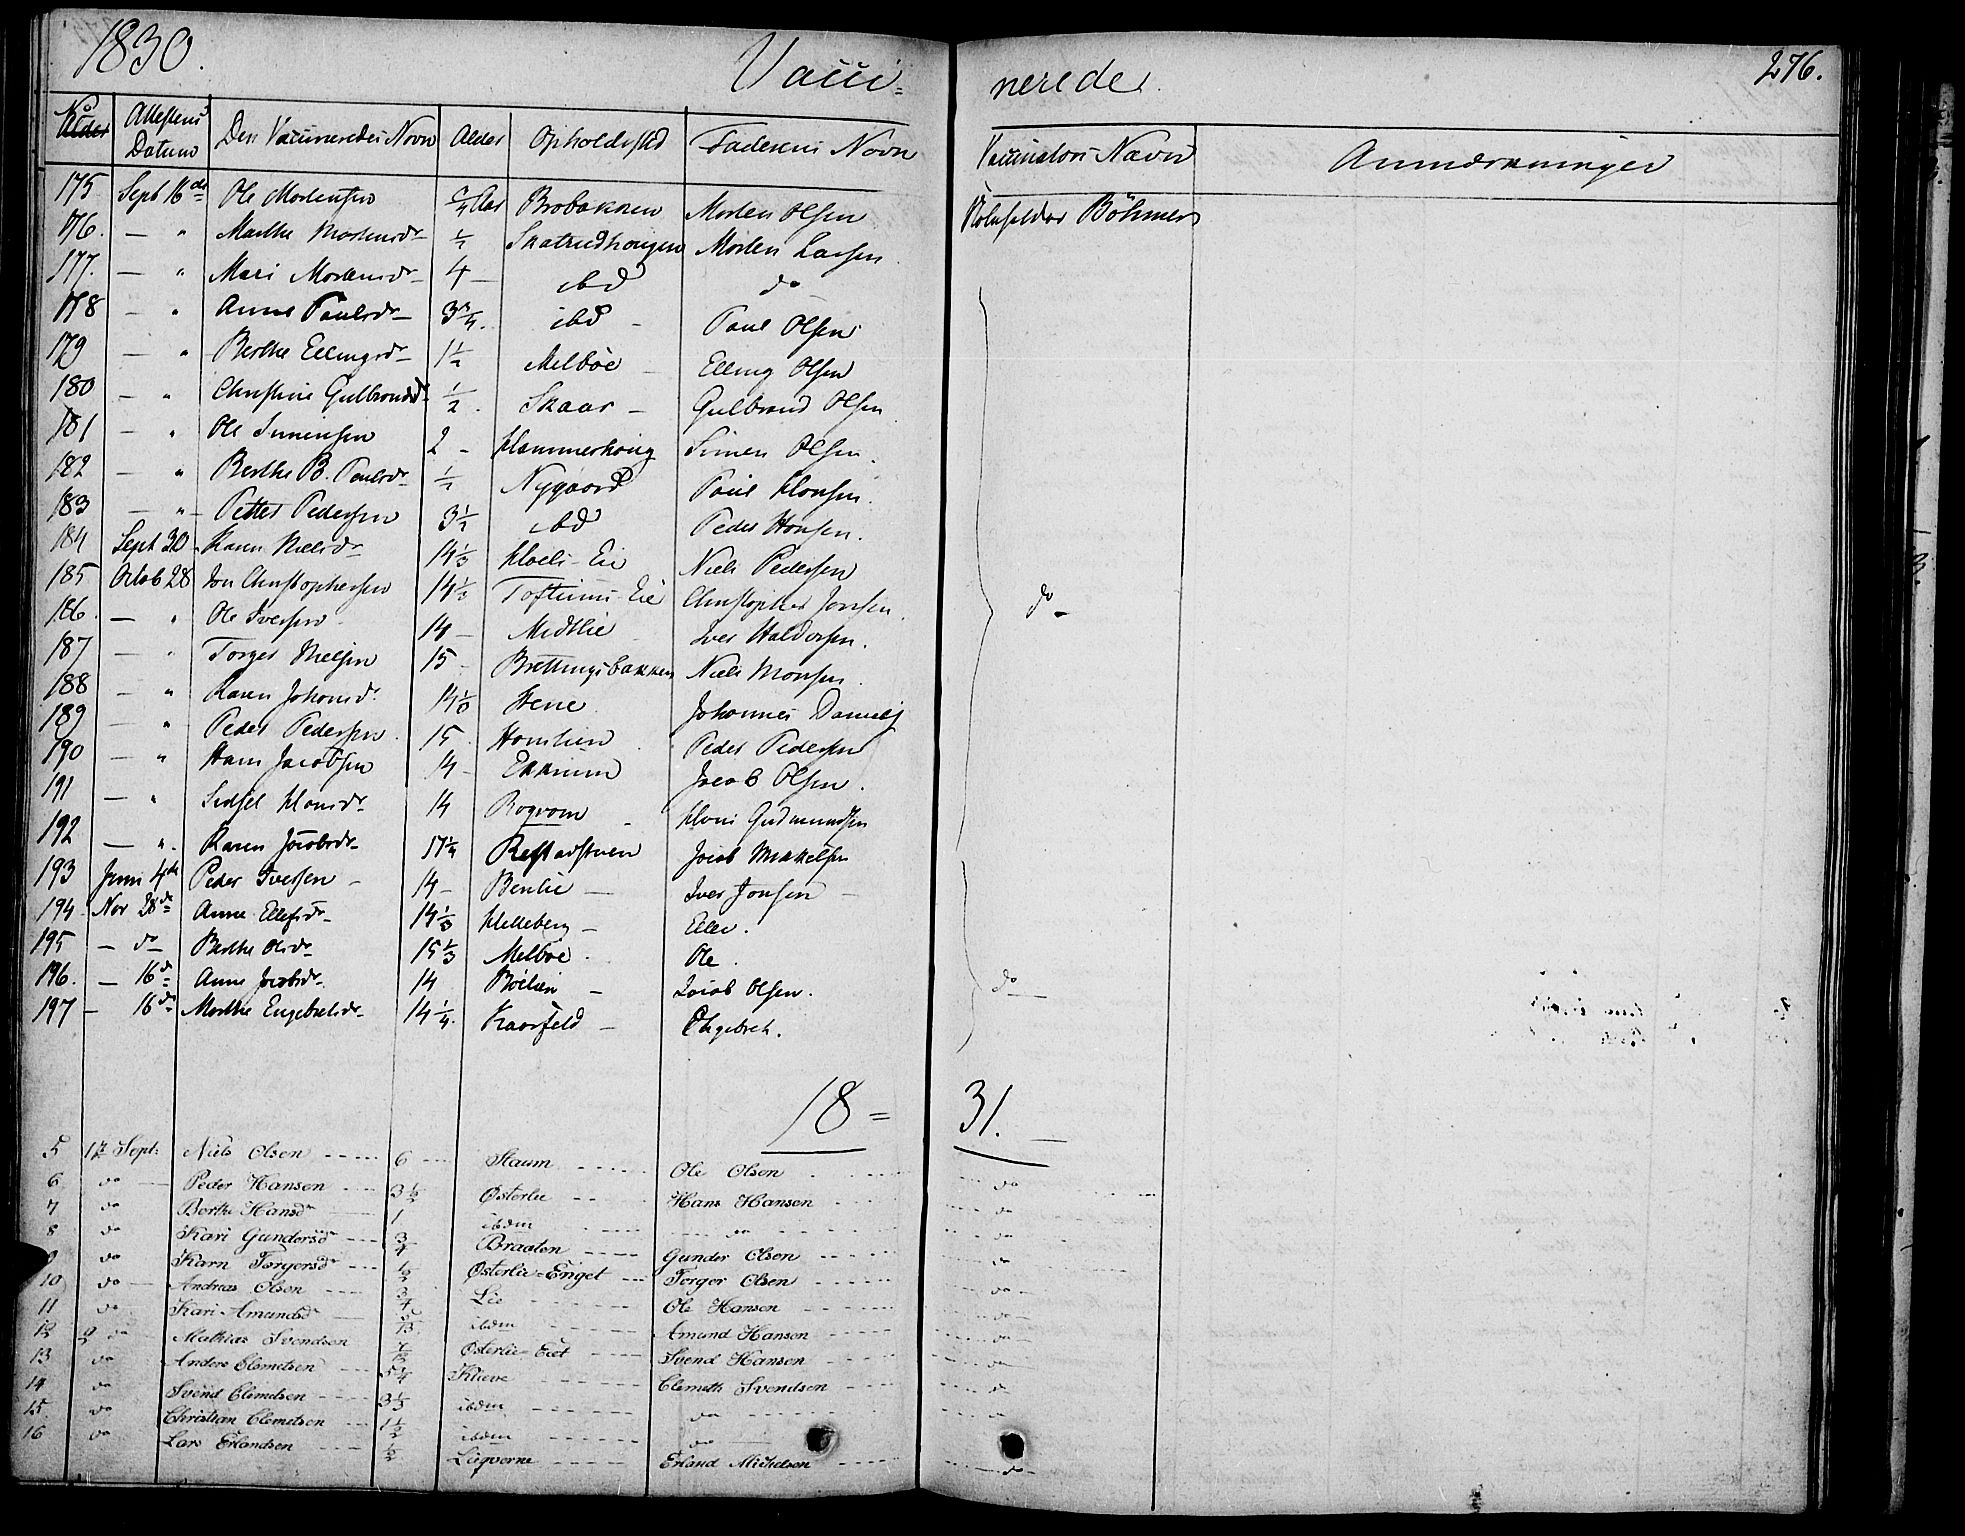 1830. Vacci= nerede. 276.
No Alder Attestens Datum Den Vaccineredes Navn Alder Opholdssted Faderens Navn Vaccinators Navn Anmærkninger
175. Sept 16de Ole Mortensen Aar Brobakken Morten Olsen Böhmer
176. — " Marthe Mortensdr ½ Skatrudhougen Morten Larsen
177. — " Mari Mortensdr 4 — ibd do
178 — " Anne Paulsdr 3¾. ibd — Paul Olsen
179 — " Berthe Ellingsdr 1½ Melböe — Elling Olsen
180 — " Christine Gulbrandsdr ½. Skaar — Gulbrand Olsen
181 — " Ole Simensen 2 — Hammerhoug Simen Olsen.
182 — " Berthe B. Paulsdr ½ Nygaard Paul Hansen.
183 — " Petter Pedersen 3½ ibd Peder Hansen.
184 Sept 30 Karen Nielsdr 14⅓ Hoels-Eie Niels Pedersen
185 Octob 28 Jon Christophersen 14½ Toftums-Eie Christopher Jonsen. do —
186. — " Ole Iversen 14 — Midtlie Iver Haldorsen.
187 — " Torger Nielsen 15 — Brettingsbakken Niels Monsen.
188 — " Karen Johansdr Hene Johannes Danielsen
189 — " Peder Pedersen. 15 Homlien Peder Pedersen
190 — " Hans Jacobsen 14 — Ekkren Jacob Olsen.
191 — " Sidsel Hansdr 14 Rogvam Hans Gudmundsen
192 — ". Karen Jacobsdr 17¼ Jacob Mikkelsen
193 Juni 4de Peder Iversen — 14 — Benlie — Iver Jonsen —
194 Nov 28de Anne Ellefsdr 14⅓ Helleberg — Ellev.
195 — do Berthe Olsdr 15⅓ Melboe. Ole.
196. — 16de Anne Jacobsdr 14 Böelien — Jacob Olsen. do —
197 — 16de Marthe Engebretsdr 14¼. Kaarfeld — Engebreth.
18= 31.
5 12 Sept: Niels Olsen 6 Staum Ole Olsen do
6 do Peder Hansen 3½ Østerlie Hans Hansen do
7 do Berthe Hansdr 1 ibdm do do
8 do Kari Gundersdr ¾ Braaten Gunder Olsen do
9 do Karn Torgersdr ½ Østerlie-Enget Torger Olsen do
10 do Andreas Olsen ¾ Lie Ole Hansen do
11 do Kari Amundsdr ibdm Amund Hansen do
12 2 do Mathias Svendsen Østerlie-Eiet Svend Hansen do
13 do Anders Clemetsen 5¼ Kleve Clemeth Svendsen do
14 do Svend Clemetsen 3⅓ ibdm do do
15 do Christian Clemetsen 1½ ibdm do
16 do Lars Erlandsen ½ Liegverne Erland Michelsen do